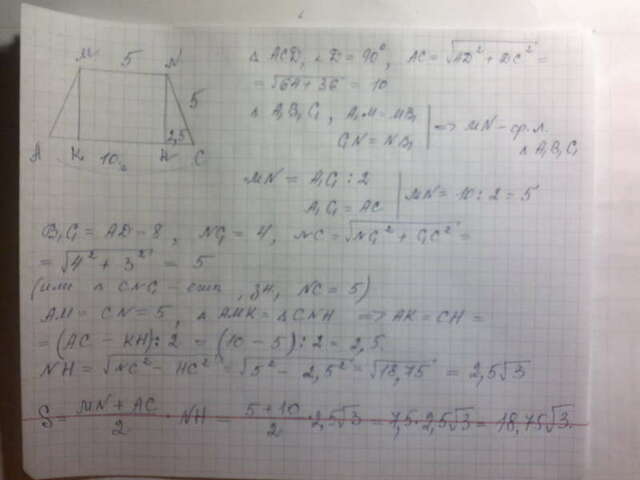 M 5 N
5
2,5
A K H C
10
△ ACD, ∠D = 90°, AC = √AD² + DC² =
= √64 + 36 = 10
△ A₁B₁C₁, A₁M = MB₁
C₁N = NB₁
=> MN - ср. л.
△ A₁B₁C₁
MN = A₁C₁ : 2
A₁C₁ = AC
MN = 10 : 2 = 5
B₁C₁ = AD = 8, NC₁ = 4, NC = √NC₁² + C₁C² =
= √4² + 3² = 5
(или △ CNC₁ - егип, 34, NC = 5)
AM = CN = 5, △ AMK = △ CNH => AK = CH =
= (AC - KH) : 2 = (10 - 5) : 2 = 2,5.
NH = √NC² - HC² = √5² - 2,5² = √18,75 = 2,5√3
S = (MN + AC)/2 · NH = (5 + 10)/2 · 2,5√3 = 7,5 · 2,5√3 = 18,75√3.